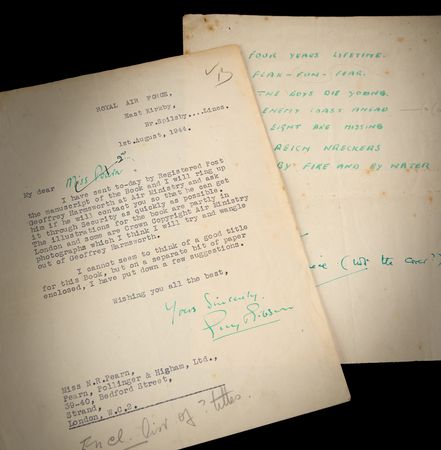 ROYAL AIR FORCE,
East Kirkby,
Nr.Spilsby....Lincs.
1st.August, 1944.
My dear Miss
I have sent to-day by Registered Post
the manuscript of the Book and I will ring up
Geoffrey Harmsworth at Air Ministry and ask
his if he will contact you so that he can get
it through Security as quickly as possible.
The illustrations for the book are partly in
London and some are Crown Copyright Air Ministry
photographs which I think I will try and wangle
out of Geoffrey Harmsworth.
I cannot seem to think of a good title
for this Book, but on a separate bit of paper
enclosed, I have put down a few suggestions.
Wishing you all the best,
Yours Sincerely.
Guy Gibson
Miss N.R.Pearn,
Pearn, Pollinger & Higham, Ltd.,
39-40, Bedford Street,
Strand,
London, W.C.2.
Encl. list of ? titles.
FOUR YEARS LIFETIME.
FLAK - FUN - FEAR.
THE BOYS DIE YOUNG.
ENEMY COAST AHEAD
EIGHT ARE MISSING
REICH WRECKERS
BY FIRE AND BY WATER
the cover??